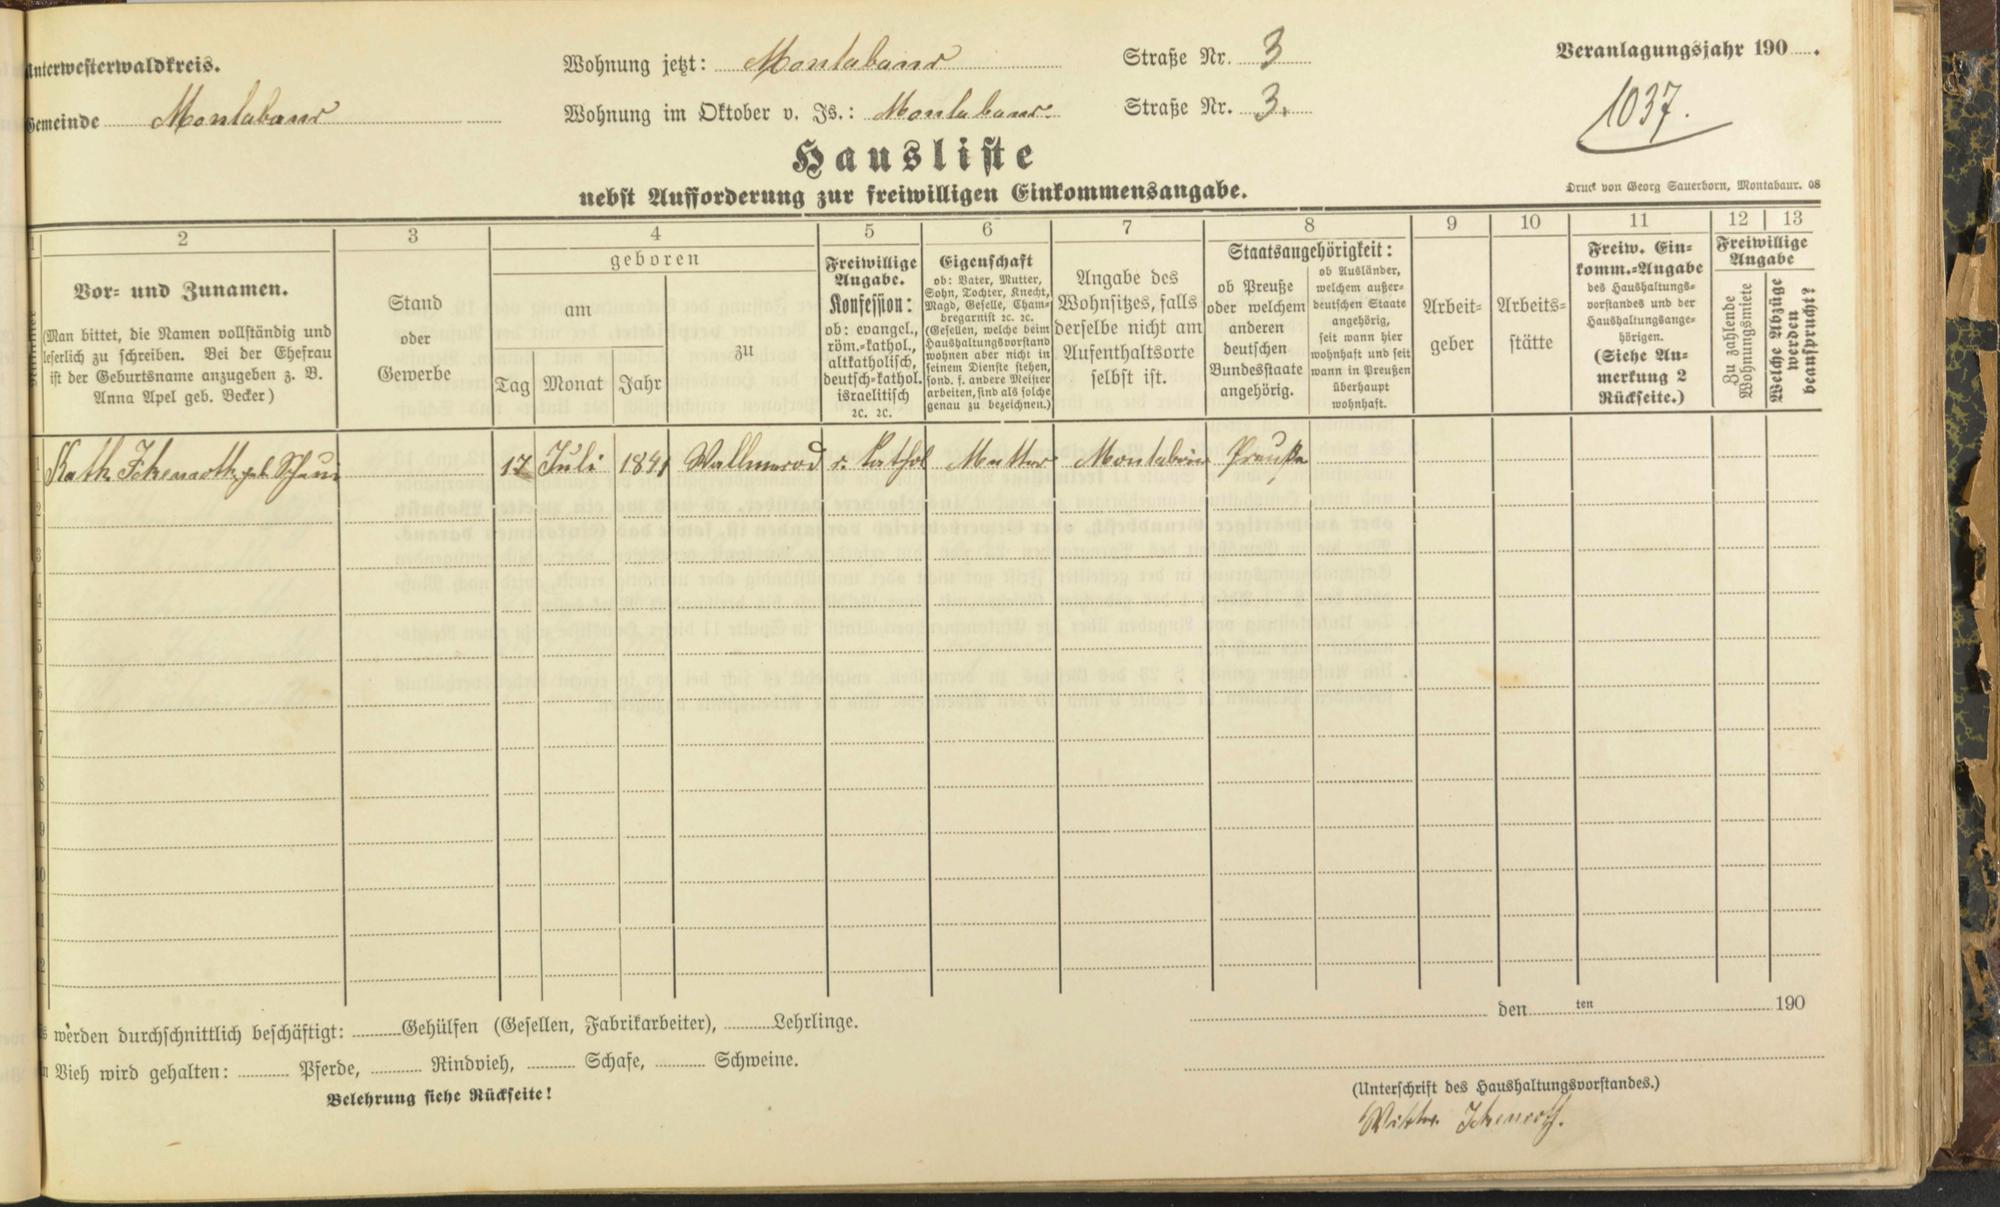 Unterwesterwaldkreis.
Wohnung jetzt: Montabaur Straße Nr. 3
Veranlagungsjahr 190 .
Gemeinde Montabaur
Wohnung im Oktober v. Js.: Montabaur Straße Nr. 3.
1037.
Hausliste
nebst Aufforderung zur freiwilligen Einkommensangabe.
Druck von Georg Sauerborn, Montabaur. 08
1 2 3 4 5 6 7 8 9 10 11 12 13
Vor- und Zunamen.
(Man bittet, die Namen vollständig und
leserlich zu schreiben. Bei der Ehefrau
ist der Geburtsname anzugeben z. B.
Anna Apel geb. Becker)
Stand
oder
Gewerbe
geboren
am
Tag Monat Jahr
zu
Freiwillige
Angabe.
Konfession:
ob: evangel.,
röm.-kathol.,
altkatholisch,
deutsch-kathol.
israelitisch
ꝛc. ꝛc.
Eigenschaft
ob: Vater, Mutter,
Sohn, Tochter, Knecht,
Magd, Geselle, Cham-
bregarnist ꝛc. ꝛc.
(Gesellen, welche beim
Haushaltungsvorstand
wohnen aber nicht in
seinem Dienste stehen,
sond. f. andere Meister
arbeiten, sind als solche
genau zu bezeichnen.)
Angabe des
Wohnsitzes, falls
derselbe nicht am
Aufenthaltsorte
selbst ist.
Staatsangehörigkeit:
ob Preuße
oder welchem
anderen
deutschen
Bundesstaate
angehörig.
ob Ausländer,
welchem außer-
deutschen Staate
angehörig,
seit wann hier
wohnhaft und seit
wann in Preußen
überhaupt
wohnhaft.
Arbeit-
geber
Arbeits-
stätte
Freiw. Ein-
komm.-Angabe
des Haushaltungs-
vorstandes und der
Haushaltungsange-
hörigen.
(Siehe An-
merkung 2
Rückseite.)
Freiwillige
Angabe
Zu zahlende
Wohnungsmiete
Welche Abzüge
werden
beansprucht?
1 Kath. Ickenroth geb. 17 Juli 1841 Wallmerod r. kathol Mutter Montabaur Preuße
2
3
4
5
6
7
8
9
10
11
12
Es werden durchschnittlich beschäftigt: Gehülfen (Gesellen, Fabrikarbeiter), Lehrlinge.
An Vieh wird gehalten: Pferde, Rindvieh, Schafe, Schweine.
Belehrung siehe Rückseite!
den ten 190
(Unterschrift des Haushaltungsvorstandes.)
Viktor Ickenroth.